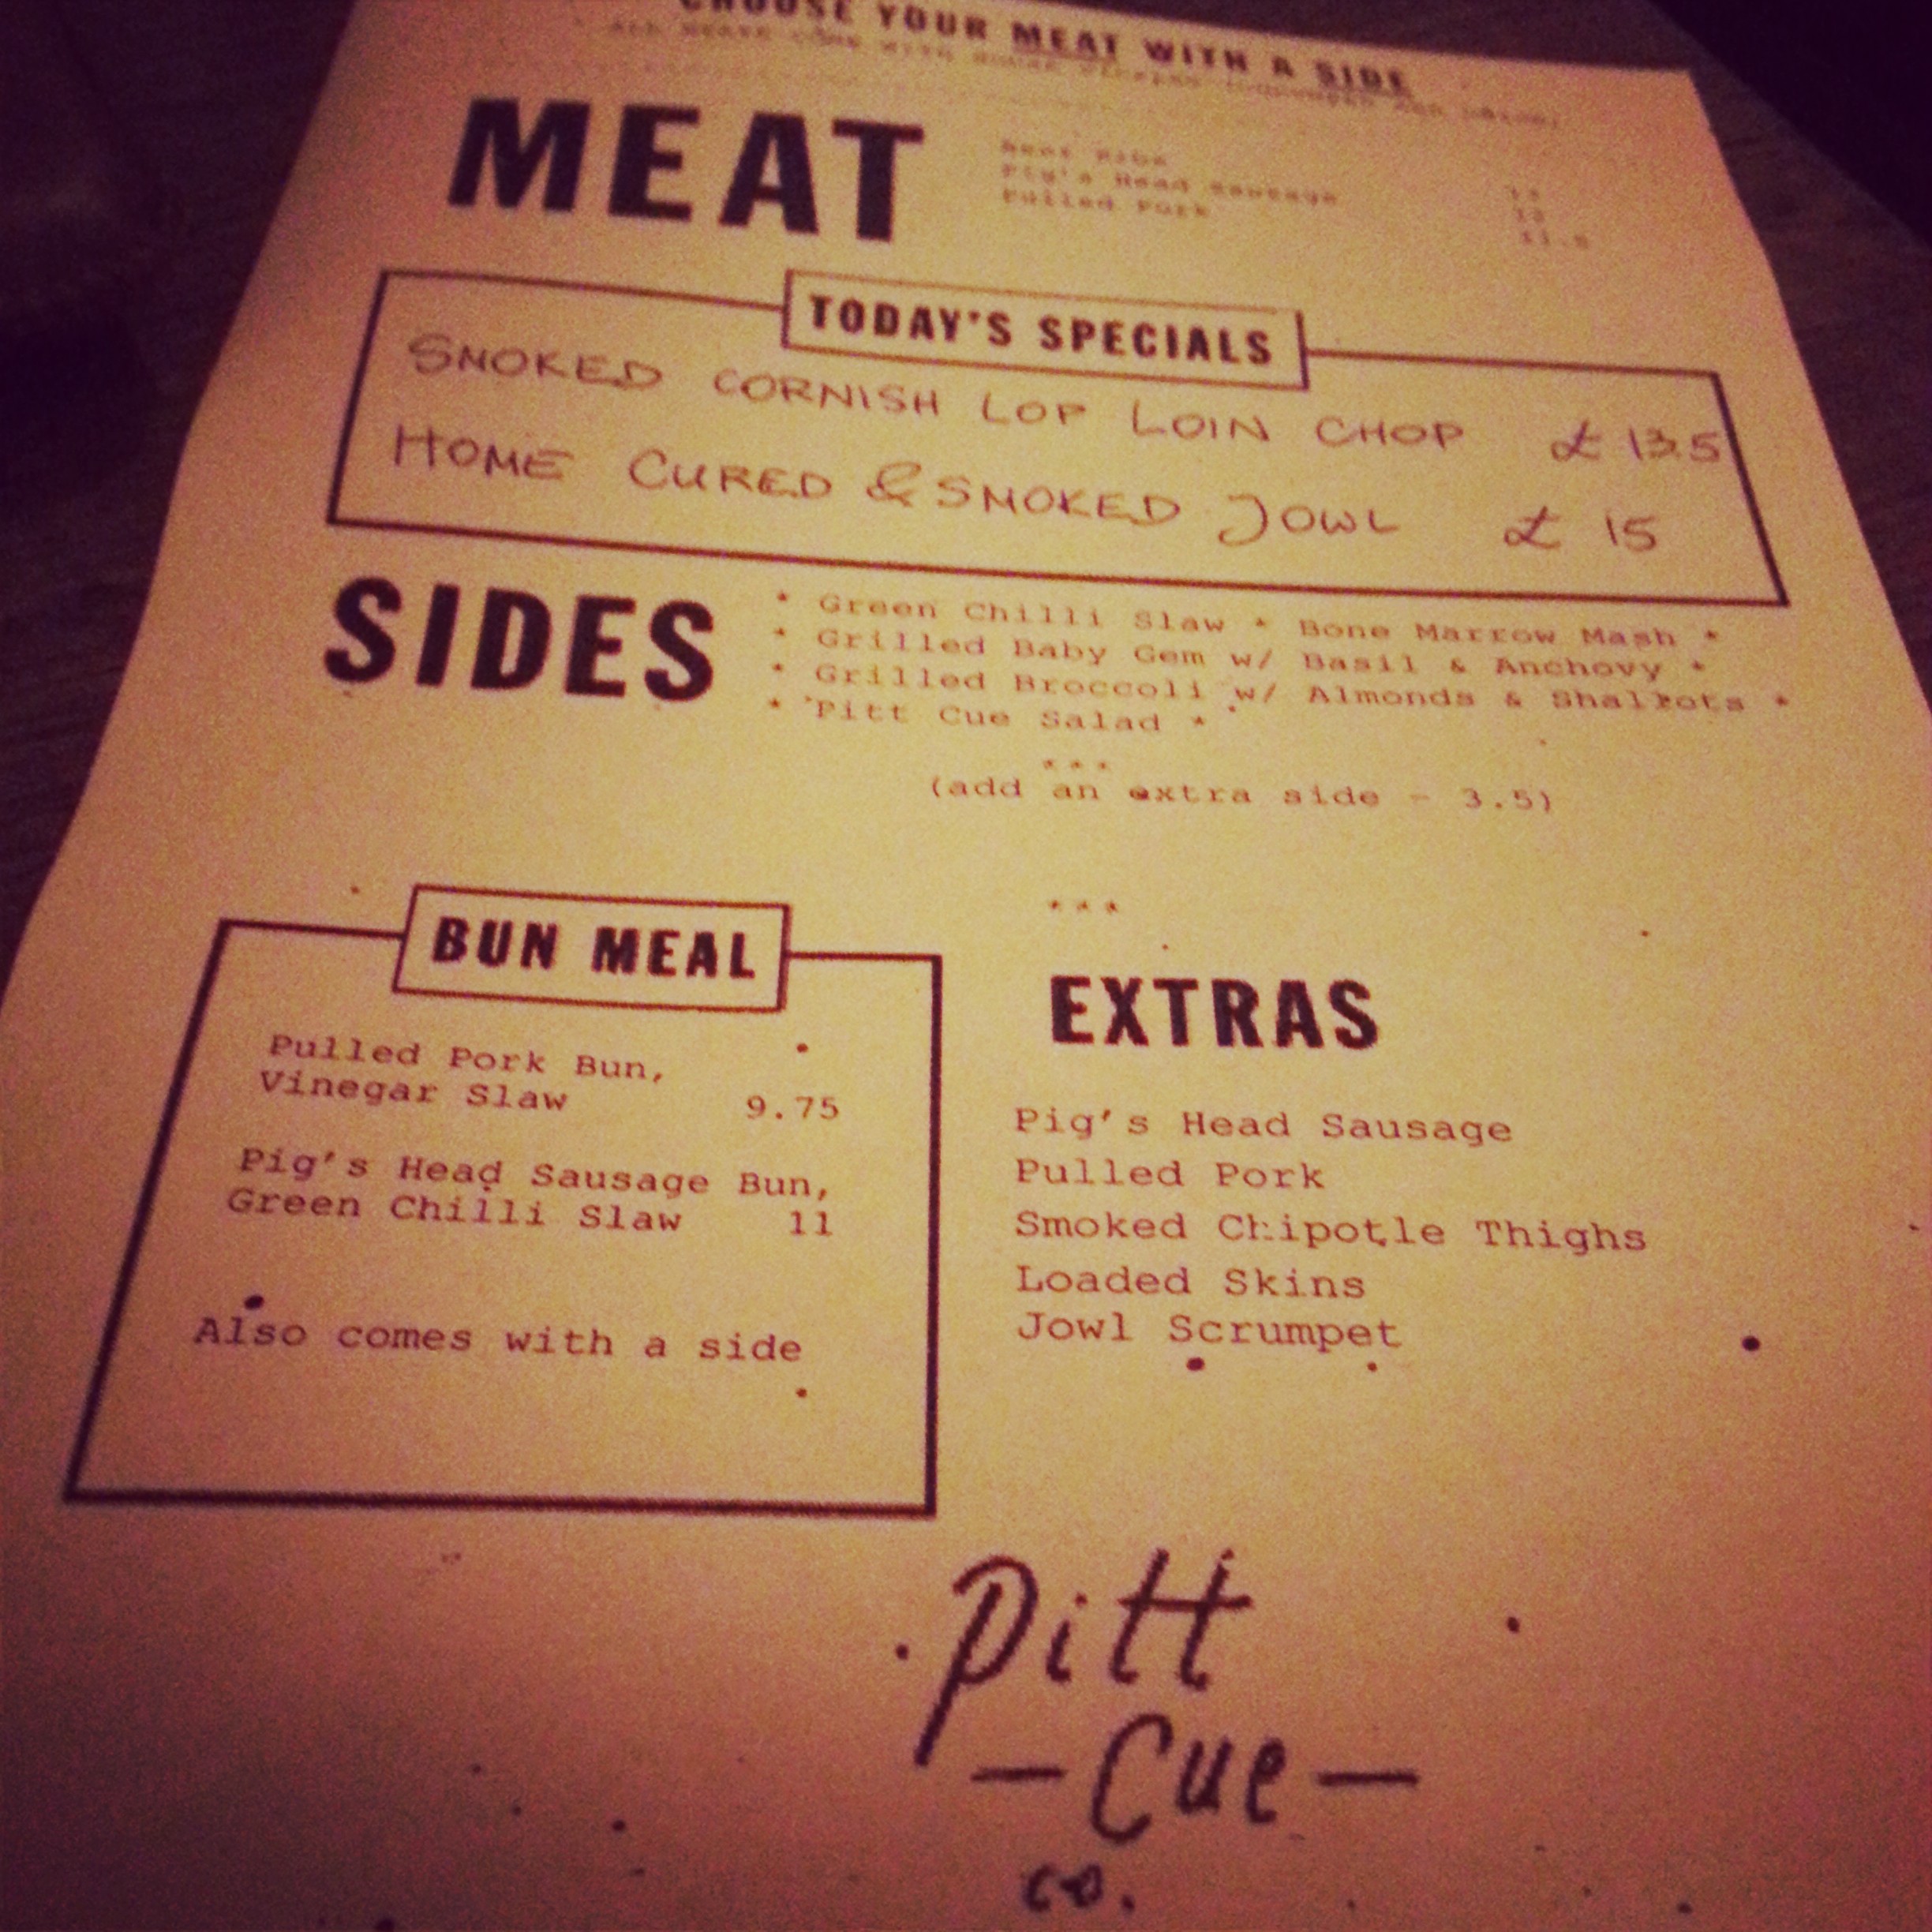 CHOOSE YOUR MEAT WITH A SIDE
ALL MEATS COME WITH HOUSE PICKLES
MEAT
Pig's Head Sausage
Pulled Pork 11.5
TODAY'S SPECIALS
SMOKED CORNISH LOP LOIN CHOP £13.5
HOME CURED & SMOKED JOWL £15
SIDES
* Green Chilli Slaw * Bone Marrow Mash *
* Grilled Baby Gem w/ Basil & Anchovy *
* Grilled Broccoli w/ Almonds & Shallots *
* Pitt Cue Salad *
***
(add an extra side - 3.5)
***
BUN MEAL
Pulled Pork Bun,
Vinegar Slaw 9.75
Pig's Head Sausage Bun,
Green Chilli Slaw 11
Also comes with a side
EXTRAS
Pig's Head Sausage
Pulled Pork
Smoked Chipotle Thighs
Loaded Skins
Jowl Scrumpet
Pitt
-Cue-
co.